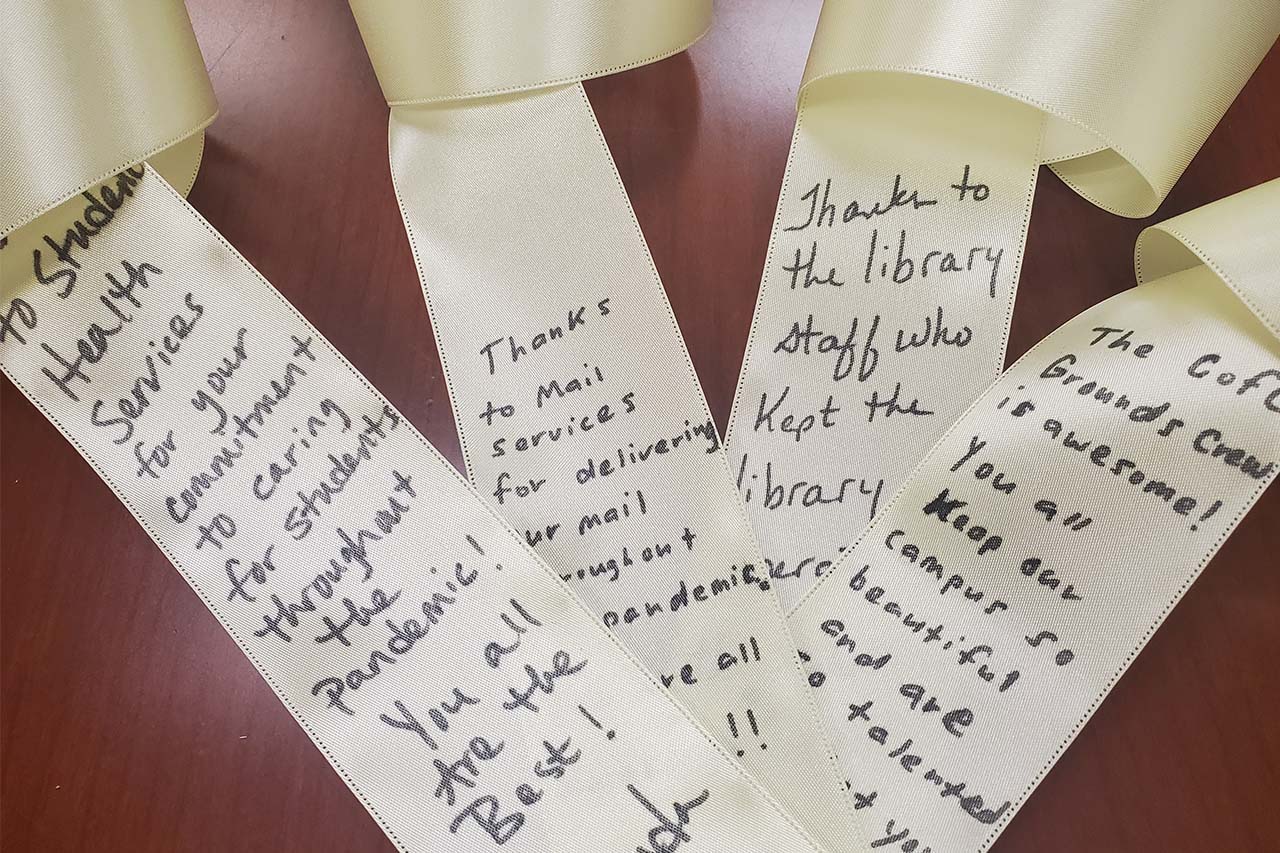 to Student
Health
Services
for your
commitment
to caring
for students
throughout
the
pandemic!
You all
Are the
Best!
Thanks
to Mail
services
for delivering
ur mail
roughout
pandemic.
re all
!!
Thanks to
the library
staff who
Kept the
library
The CofC
Grounds Crew
is awesome!
You all
Keep our
campus so
beautiful
and are
so talented